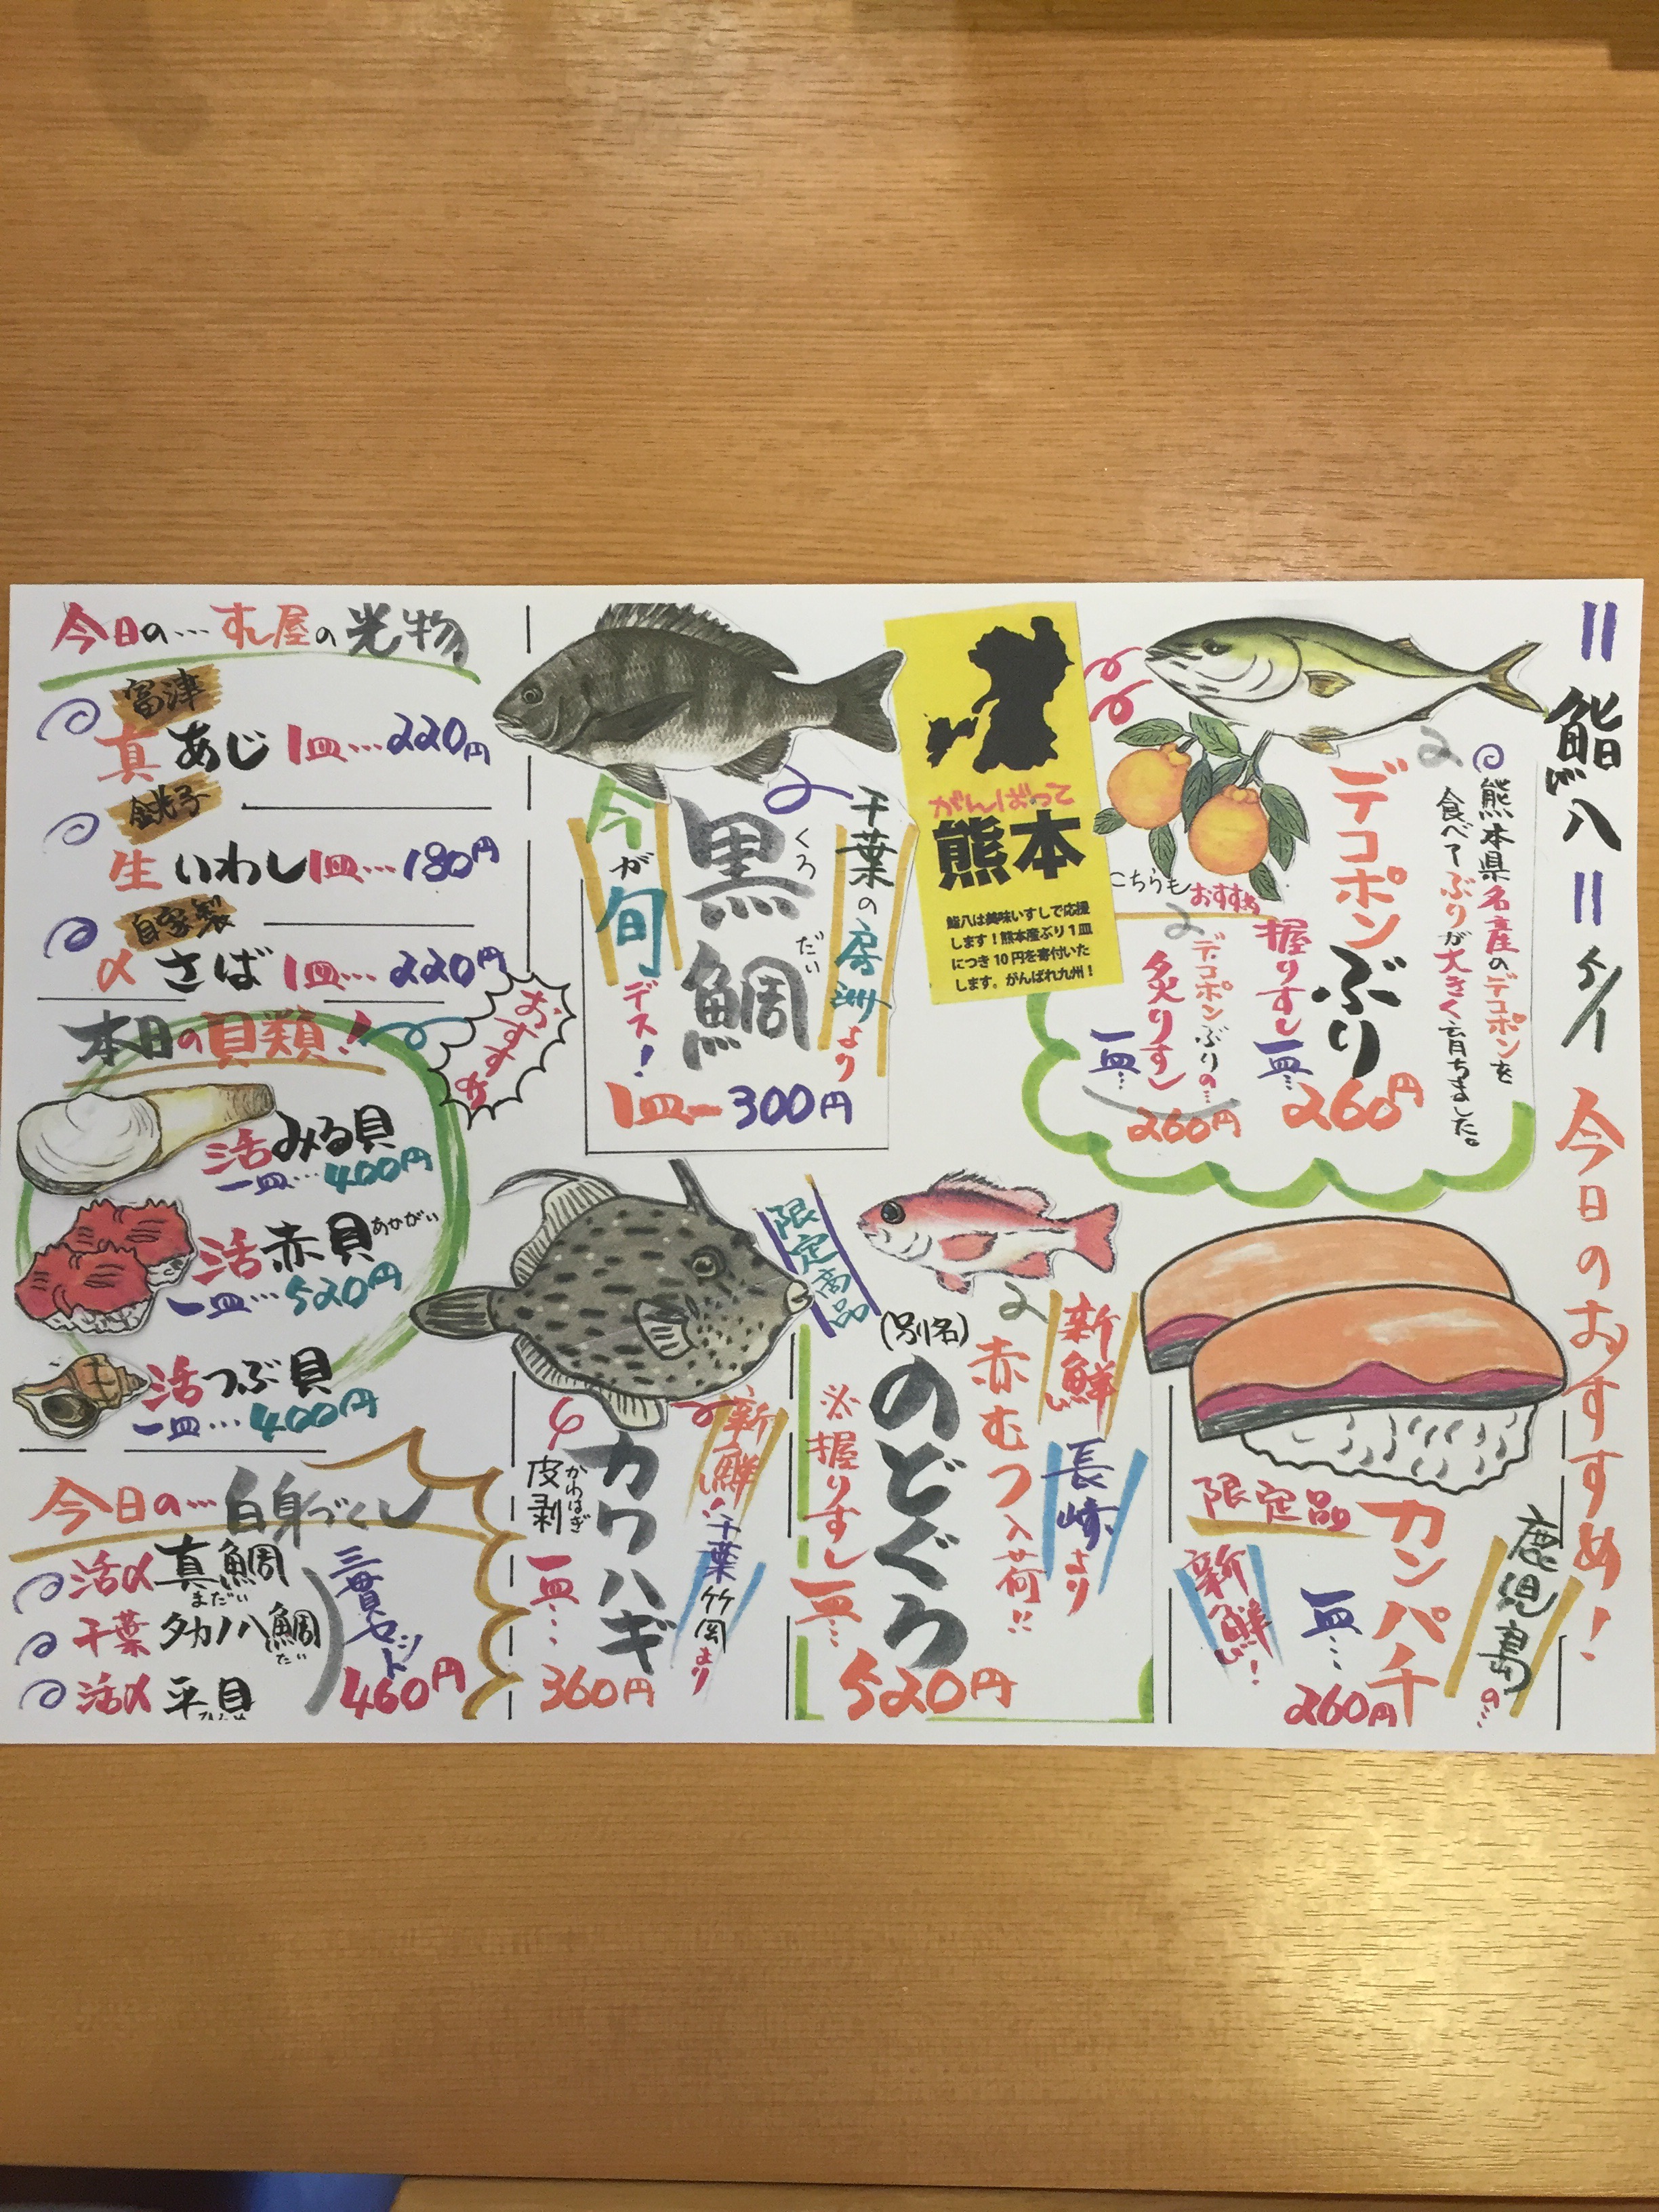 ＝鮨八＝ 5/1 今日のおすすめ！
熊本県名産のデコポンを
食べてぶりが大きく育ちました。
デコポンぶり
握りすし一皿… 260円
こちらもおすすめ
デコポンぶりの…
炙りすし
一皿… 260円
がんばって
熊本
鮨八は美味いすしで応援
します！熊本産ぶり1皿
につき10円を寄付いた
します。がんばれ九州！
千葉の房州より
黒鯛
くろだい
今が旬デス！
1皿ー300円
今日の…すし屋の光物
富津
真あじ 1皿…220円
銚子
生いわし 1皿…180円
自家製
〆さば 1皿…220円
おすすめ
本日の貝類！
活みる貝
一皿…400円
活赤貝 あかがい
一皿…520円
活つぶ貝
一皿…400円
今日の…白身づくし
活〆真鯛
まだい
千葉タカノハ鯛
たい
活〆平目
ひらめ
三貫セット
460円
鹿児島の…
カンパチ
限定品
一皿…
260円
新鮮！
新鮮い
長崎より
赤むつ入荷!!
(別名)
のどぐろ
限定商品
※握りすし一皿…
520円
新鮮い！
千葉竹岡より
カワハギ
皮剥
かわはぎ
一皿…
360円